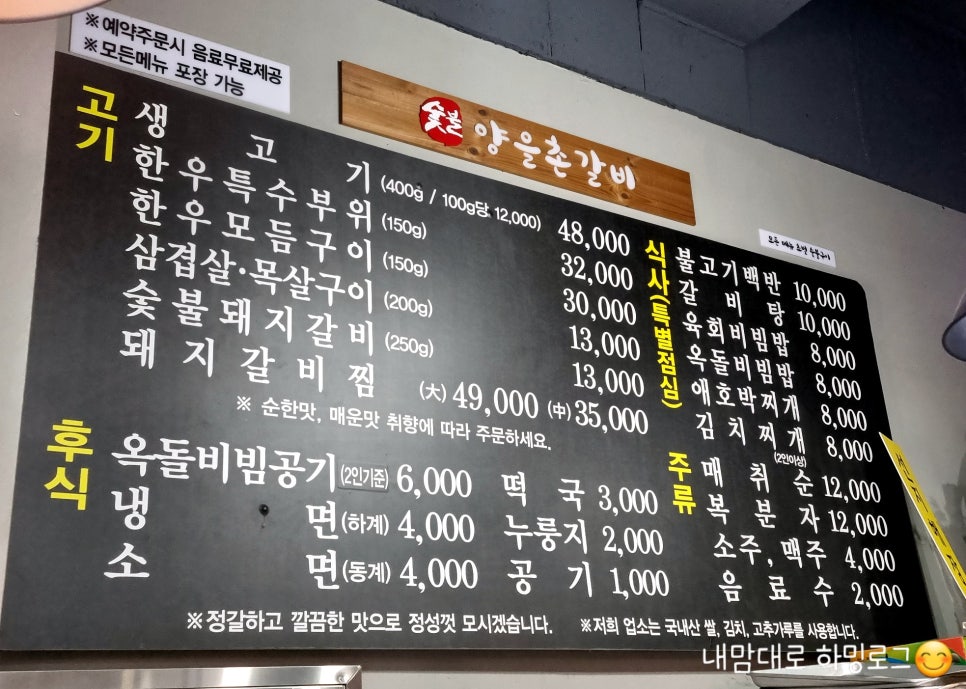 ※예약주문시 음료무료제공
※모든메뉴 포장 가능
숯불 양을촌갈비
고기
생고기 (400g / 100g당 12,000) 48,000
한우특수부위 (150g) 32,000
한우모듬구이 (150g) 30,000
삼겹살·목살구이 (200g) 13,000
숯불돼지갈비 (250g) 13,000
돼지갈비찜 (大) 49,000 (中) 35,000
※ 순한맛, 매운맛 취향에 따라 주문하세요.
후식
옥돌비빔공기 (2인기준) 6,000
냉면 (하계) 4,000
소면 (동계) 4,000
떡국 3,000
누룽지 2,000
공기 1,000
모든 메뉴
식사(특별점심)
불고기백반 10,000
갈비탕 10,000
육회비빔밥 8,000
옥돌비빔밥 8,000
애호박찌개 8,000
김치찌개 (2인이상) 8,000
주류
매취순 12,000
복분자 12,000
소주, 맥주 4,000
음료수 2,000
※정갈하고 깔끔한 맛으로 정성껏 모시겠습니다.
※저희 업소는 국내산 쌀, 김치, 고추가루를 사용합니다.
내맘대로 하밍로그